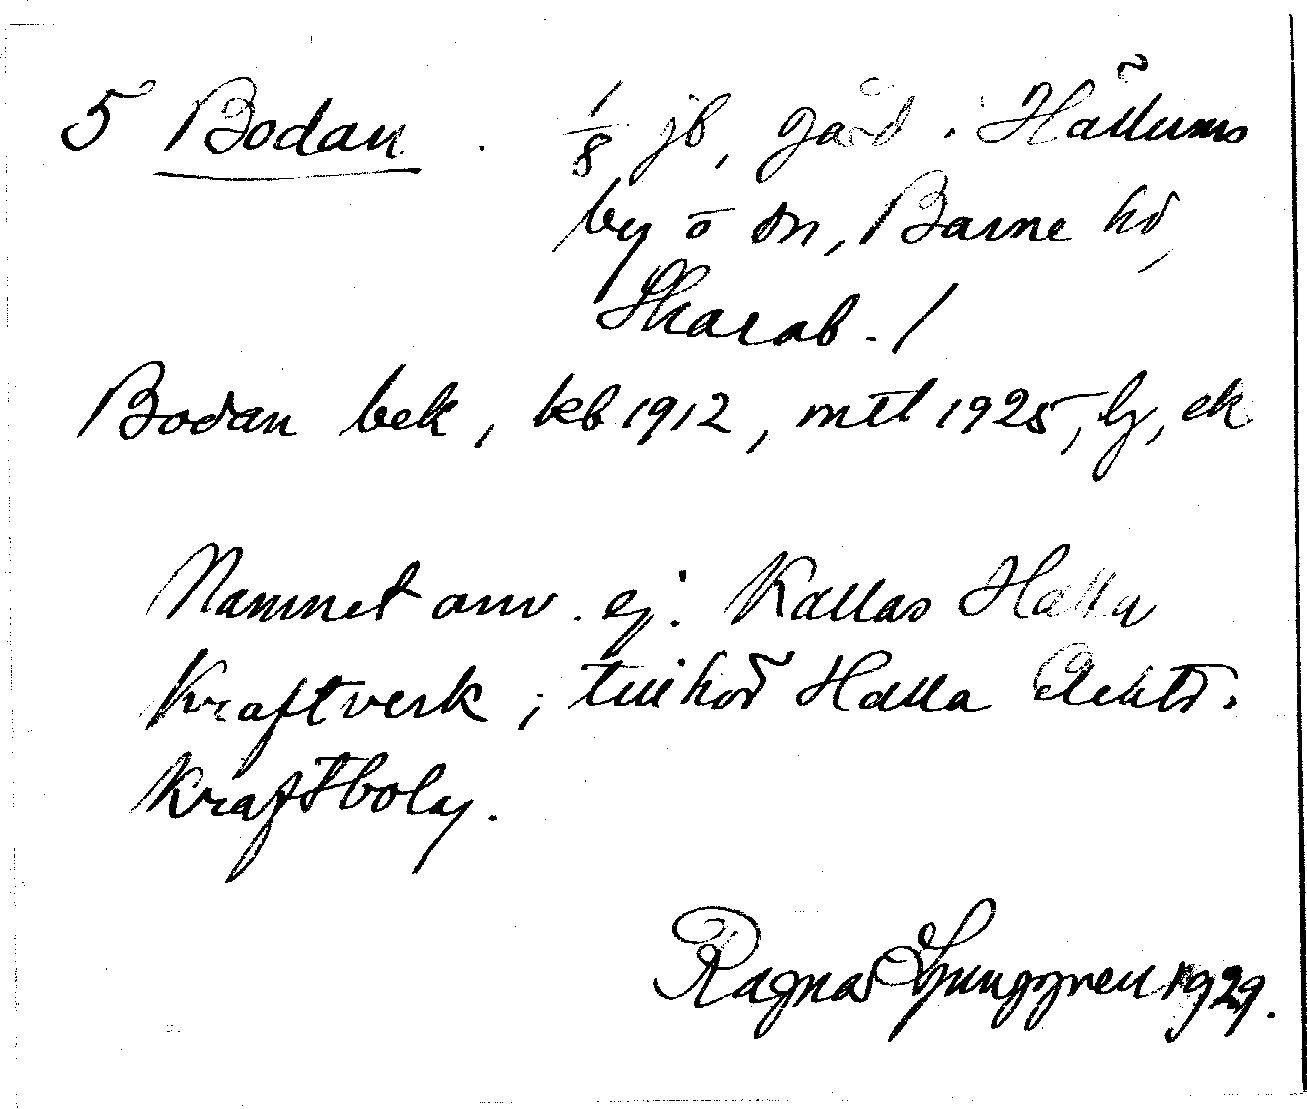 5 Bodan. 1/8 jb, gård i Hällums
by o sn, Barne hd,
Skarab. /
Bodan bek, kb 1912, mtl 1925, lj, ek
Namnet anv. ej. Kallas Halla
Kraftverk; tillhör Halla Elektr.
Kraftbolag.
Ragnar Ljunggren 1929.